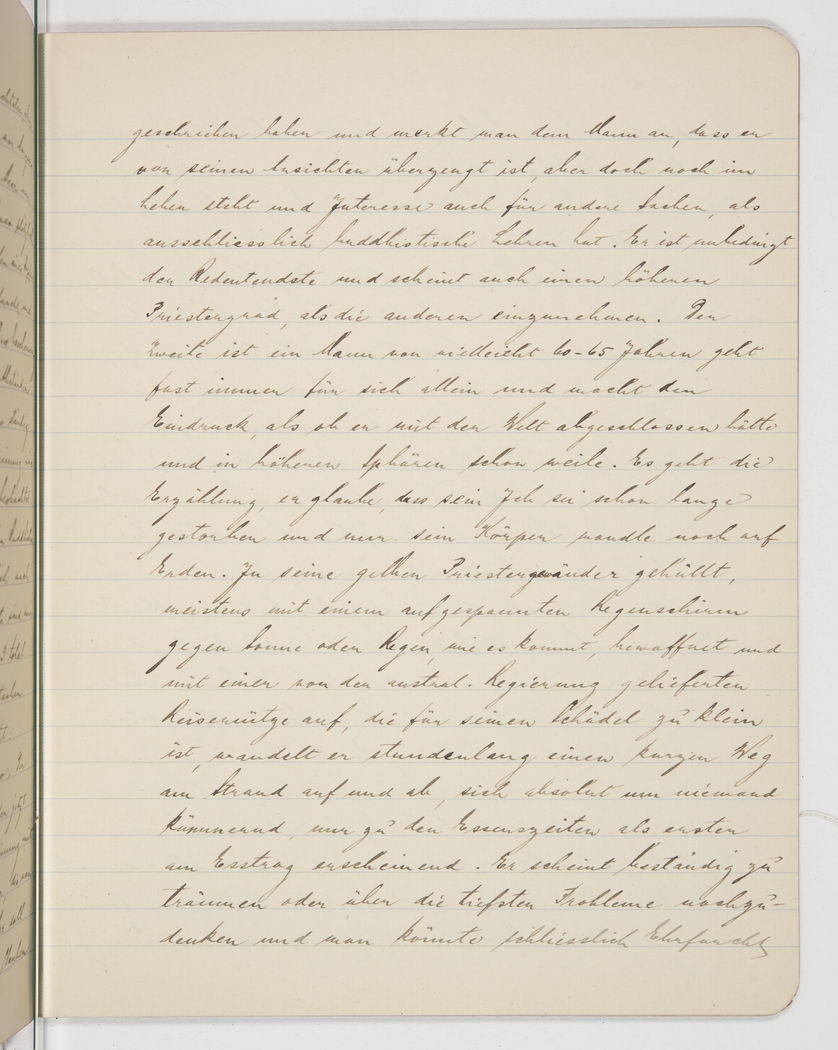 geschrieben haben und merkt man dem Mann an, dass er
von seinen Ansichten überzeugt ist, aber doch noch im
Leben steht und Interesse auch für andere Sachen, als
ausschliesslich buddhistische Lehren hat. Er ist unbedingt
der Bedeutendste und scheint auch einen höheren
Priestergrad, als die anderen einzunehmen. Der
Zweite ist ein Mann von vielleicht 60-65 Jahren geht
fast immer für sich allein und macht den
Eindruck, als ob er mit der Welt abgeschlossen hätte
und in höheren Sphären schon weile. Es geht die
Erzählung, er glaube, dass sein Ich sei schon lange
gestorben und nur sein Körper wandle noch auf
Erden. In seine gelben Priestergewänder gehüllt,
meistens mit einem aufgespannten Regenschirm
gegen Sonne oder Regen, wie es kommt, bewaffnet und
mit einer von der austral. Regierung gelieferten
Reisemütze auf, die für seinen Schädel zu klein
ist, wandelt er stundenlang einen kurzen Weg
am Strand auf und ab, sich absolut um niemand
kümmernd, nur zu den Essenszeiten als erster
am Esstrog erscheinend. Er scheint beständig zu
träumen oder über die tiefsten Probleme nachzu-
denken und man könnte schliesslich Ehrfurcht